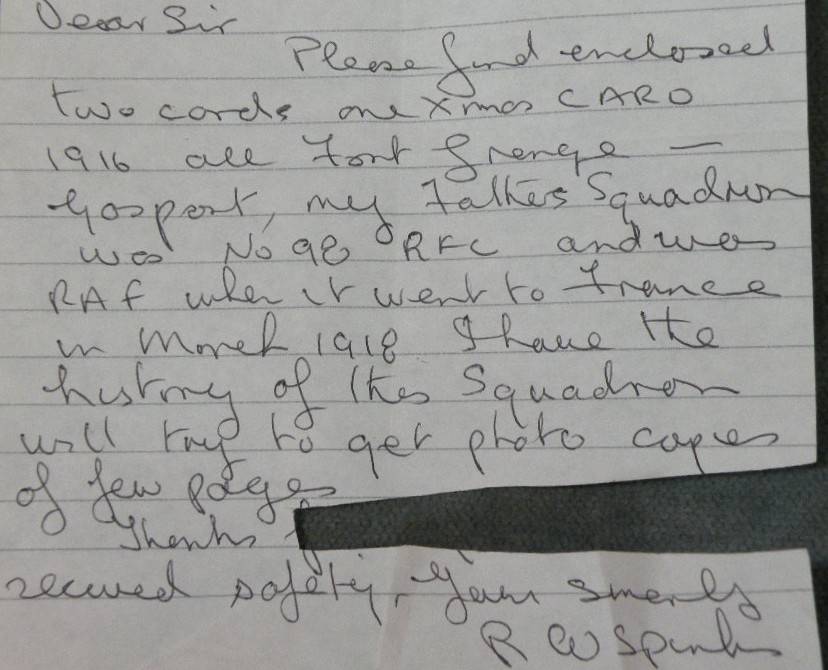 Dear Sir
Please find enclosed
two cards one Xmas CARD
1916 all Fort Grange —
Gosport, my Fathers Squadron
was No 98 RFC and was
RAF when it went to France
in March 1918 I have the
history of this Squadron
will try to get photo copies
of few pages
Thanks
received safety, Yours sincerely
R W Spinks